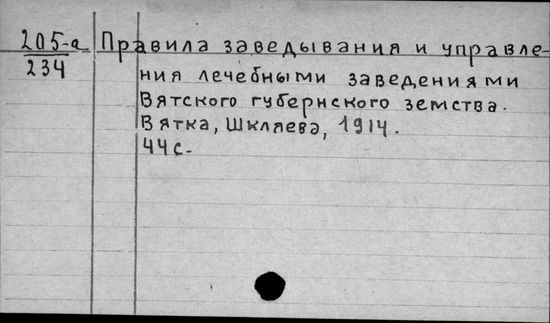 205-а Правила заведывания и управле-
234 ния лечебными заведениями
Вятского губернского земства.
Вятка, Шкляева, 1914.
44 с.